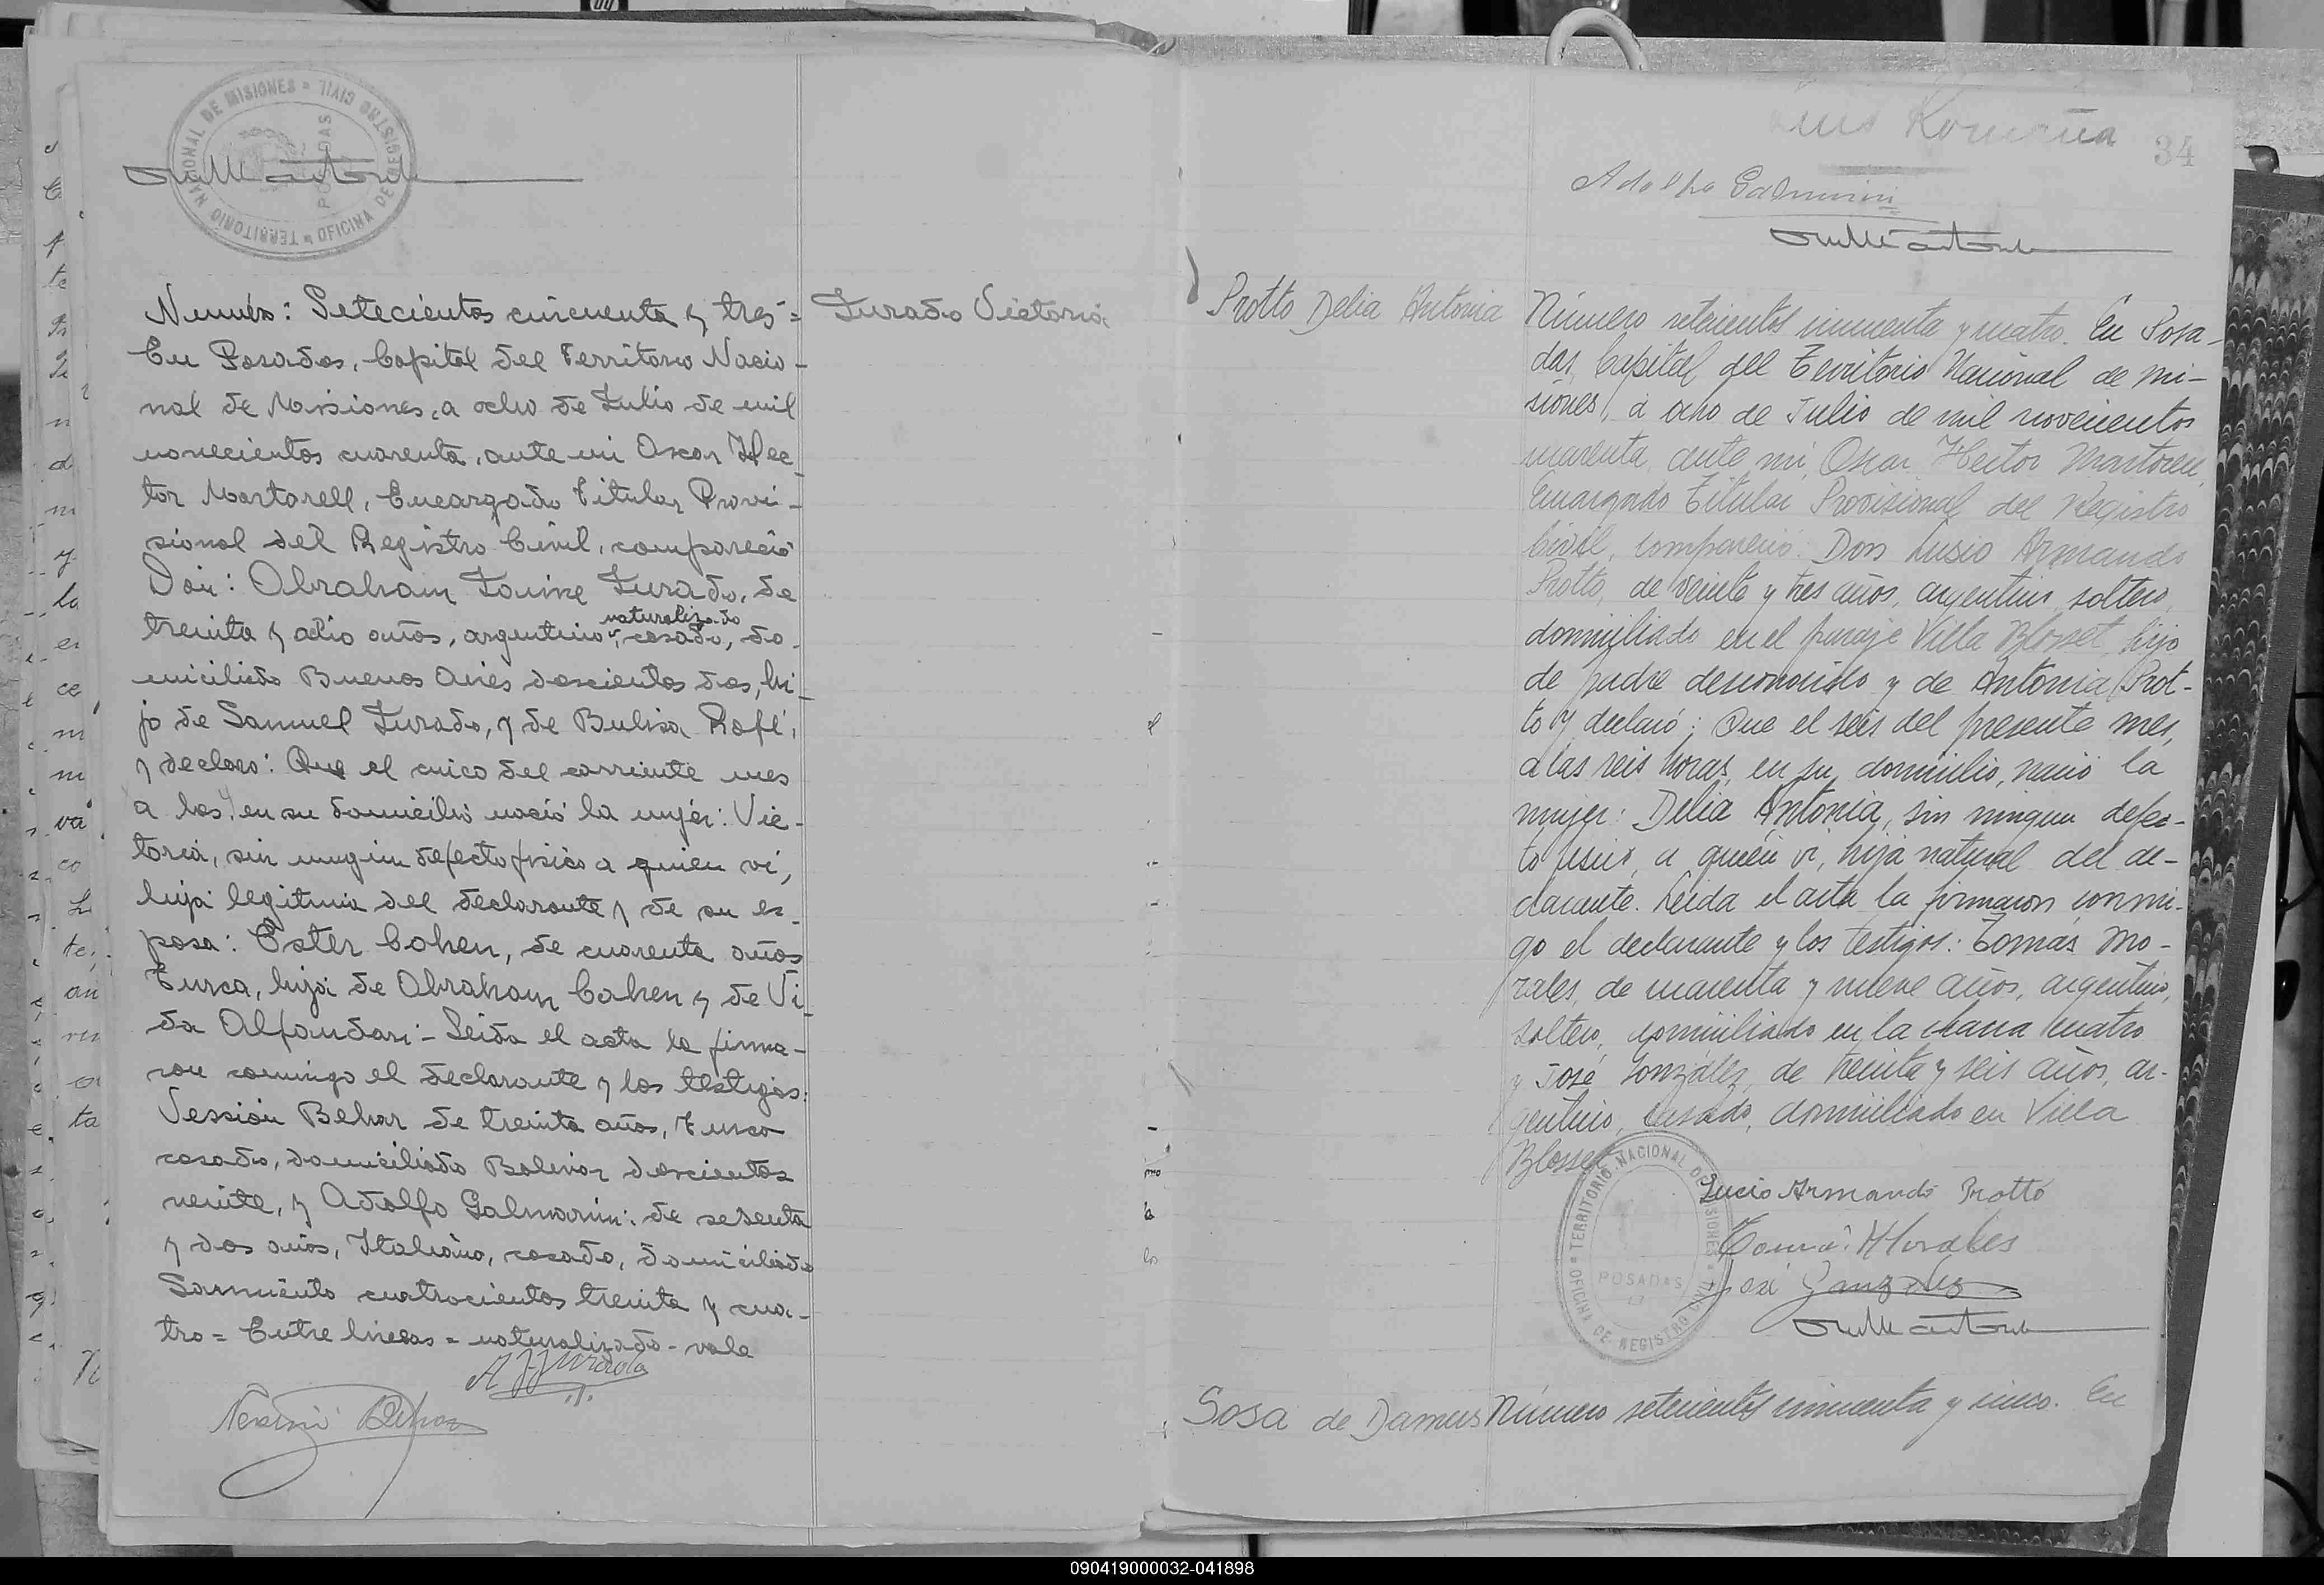 TERRITORIO NACIONAL DE MISIONES = OFICINA DE REGISTRO CIVIL
POSADAS
Jurado Victoria
Numéro: Setecientos cincuenta y tres =
En Posadas, Capital del Territorio Nacio-
nal de Misiones, a ocho de Julio de mil
novecientos cuarenta, ante mi Oscar Hec-
tor Martorell, Encargado Titular Provi-
sional del Registro Civil, compareció
Don: Abraham Jaime Jurado, de
naturalizado
treinta y ocho años, argentino, casado, do-
miciliado Buenos Aires doscientos dos, hi-
jo de Samuel Jurado, y de Bulisa Rofé,
y declaro: Que el cinco del corriente mes
a las, en su domicilio nació la mujer: Vic-
toria, sin ningun defecto fisico a quien vi,
hija legitima del declarante y de su es-
posa: Ester Cohen, de cuarenta años
Turca, hija de Abraham Cohen y de Vi-
da Alfandari - Leida el acta la firma-
ron conmigo el declarante y los testigos:
Nession Behar de treinta años, Turco
casado, domiciliado Bolivar doscientos
veinte, y Adolfo Galmarini: de sesenta
y dos años, Italiano, casado, domiciliado
Sarmiento cuatrocientos treinta y cua-
tro = Entre lineas = naturalizado - vale
A J Jurado
Behar
34
Adolfo Galmarini
Protto Delia Antonia
Número setecientos cincuenta y cuatro. En Posa-
das, Capital del Territorio Nacional de Mi-
siones, a ocho de Julio de mil novecientos
cuarenta, ante mi, Oscar Hector Martorell,
Encargado Titular Provisional del Registro
Civil, compareció: Don Lusio Armando
Protto, de veinte y tres años, argentino, soltero,
domiciliado en el paraje Villa Blosset, hijo
de padre desconocido y de Antonia Prot-
to y declaró: Que el seis del presente mes,
a las seis horas, en su domicilio, nació la
mujer: Delia Antonia, sin ningun defec-
to fisico, a quien vi, hija natural del de-
clarante. Leida el acta la firmaron conmi-
go el declarante y los testigos: Tomás Mo-
rales, de cuarenta y nueve años, argentino,
soltero, domiciliado en la chacra cuatro
y José González, de treinta y seis años, ar-
gentino, casado, domiciliado en Villa
Blosset
TERRITORIO NACIONAL DE MISIONES = OFICINA DE REGISTRO CIVIL
POSADAS
Lucio Armando Protto
Tomás Morales
José Gonzalez
Sosa de Damus
Número setecientos cincuenta y cinco. En
090419000032-041898